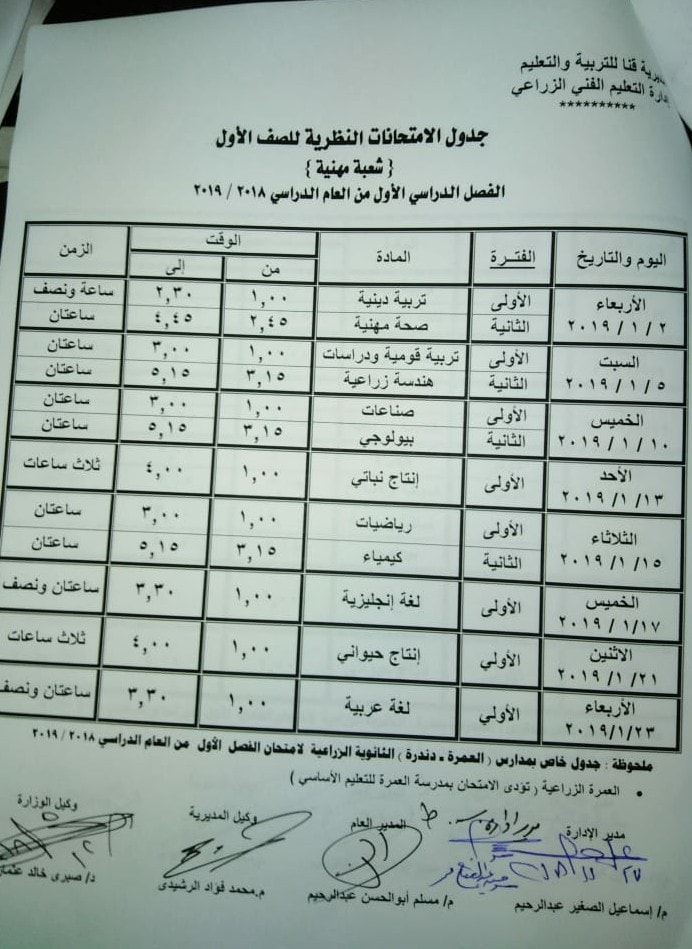 مديرية قنا للتربية والتعليم
إدارة التعليم الفني الزراعي
**********
جدول الامتحانات النظرية للصف الأول
{ شعبة مهنية }
الفصل الدراسي الأول من العام الدراسي ٢٠١٨ / ٢٠١٩
اليوم والتاريخ الفتـرة المادة الوقت الزمن
من إلى
الأربعاء ٢٠١٩ / ١ / ٢ الأولى تربية دينية ١,٠٠ ٢,٣٠ ساعة ونصف
الثانية صحة مهنية ٢,٤٥ ٤,٤٥ ساعتان
السبت ٢٠١٩ / ١ / ٥ الأولى تربية قومية ودراسات ١,٠٠ ٣,٠٠ ساعتان
الثانية هندسة زراعية ٣,١٥ ٥,١٥ ساعتان
الخميس ٢٠١٩ / ١ / ١٠ الأولى صناعات ١,٠٠ ٣,٠٠ ساعتان
الثانية بيولوجي ٣,١٥ ٥,١٥ ساعتان
الأحد ٢٠١٩ / ١ / ١٣ الأولى إنتاج نباتي ١,٠٠ ٤,٠٠ ثلاث ساعات
الثلاثاء ٢٠١٩ / ١ / ١٥ الأولى رياضيات ١,٠٠ ٣,٠٠ ساعتان
الثانية كيمياء ٣,١٥ ٥,١٥ ساعتان
الخميس ٢٠١٩ / ١ / ١٧ الأولى لغة إنجليزية ١,٠٠ ٣,٣٠ ساعتان ونصف
الاثنين ٢٠١٩ / ١ / ٢١ الأولي إنتاج حيواني ١,٠٠ ٤,٠٠ ثلاث ساعات
الأربعاء ٢٠١٩/١/٢٣ الأولي لغة عربية ١,٠٠ ٣,٣٠ ساعتان ونصف
ملحوظة : جدول خاص بمدارس ( العمرة - دندرة ) الثانوية الزراعية لامتحان الفصل الأول من العام الدراسي ٢٠١٨ / ٢٠١٩
• العمرة الزراعية ( تؤدى الامتحان بمدرسة العمرة للتعليم الأساسي )
مدير الإدارة المدير العام وكيل المديرية وكيل الوزارة
م/ إسماعيل الصغير عبدالرحيم م/ مسلم أبوالحسن عبدالرحيم م.محمد فؤاد الرشيدى د/ صبرى خالد عثمان